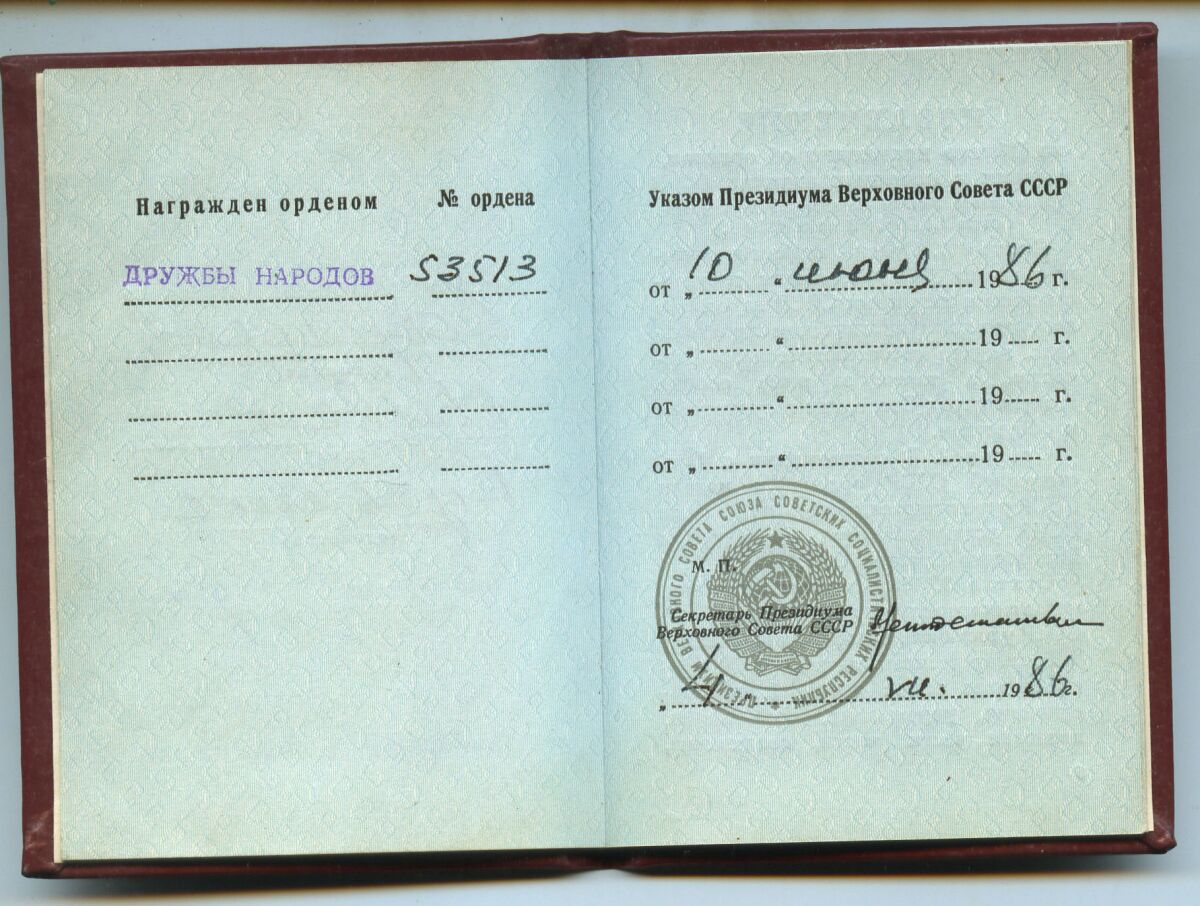 Награжден орденом № ордена
ДРУЖБЫ НАРОДОВ 53513
Указом Президиума Верховного Совета СССР
от „ 10 “ июня 1986 г.
от „ “ 19 г.
от „ “ 19 г.
от „ “ 19 г.
ПРЕЗИДИУМ ВЕРХОВНОГО СОВЕТА СОЮЗА СОВЕТСКИХ СОЦИАЛИСТИЧЕСКИХ РЕСПУБЛИК
М. П.
Секретарь Президиума
Верховного Совета СССР
„ 4 “ VII. 1986 г.